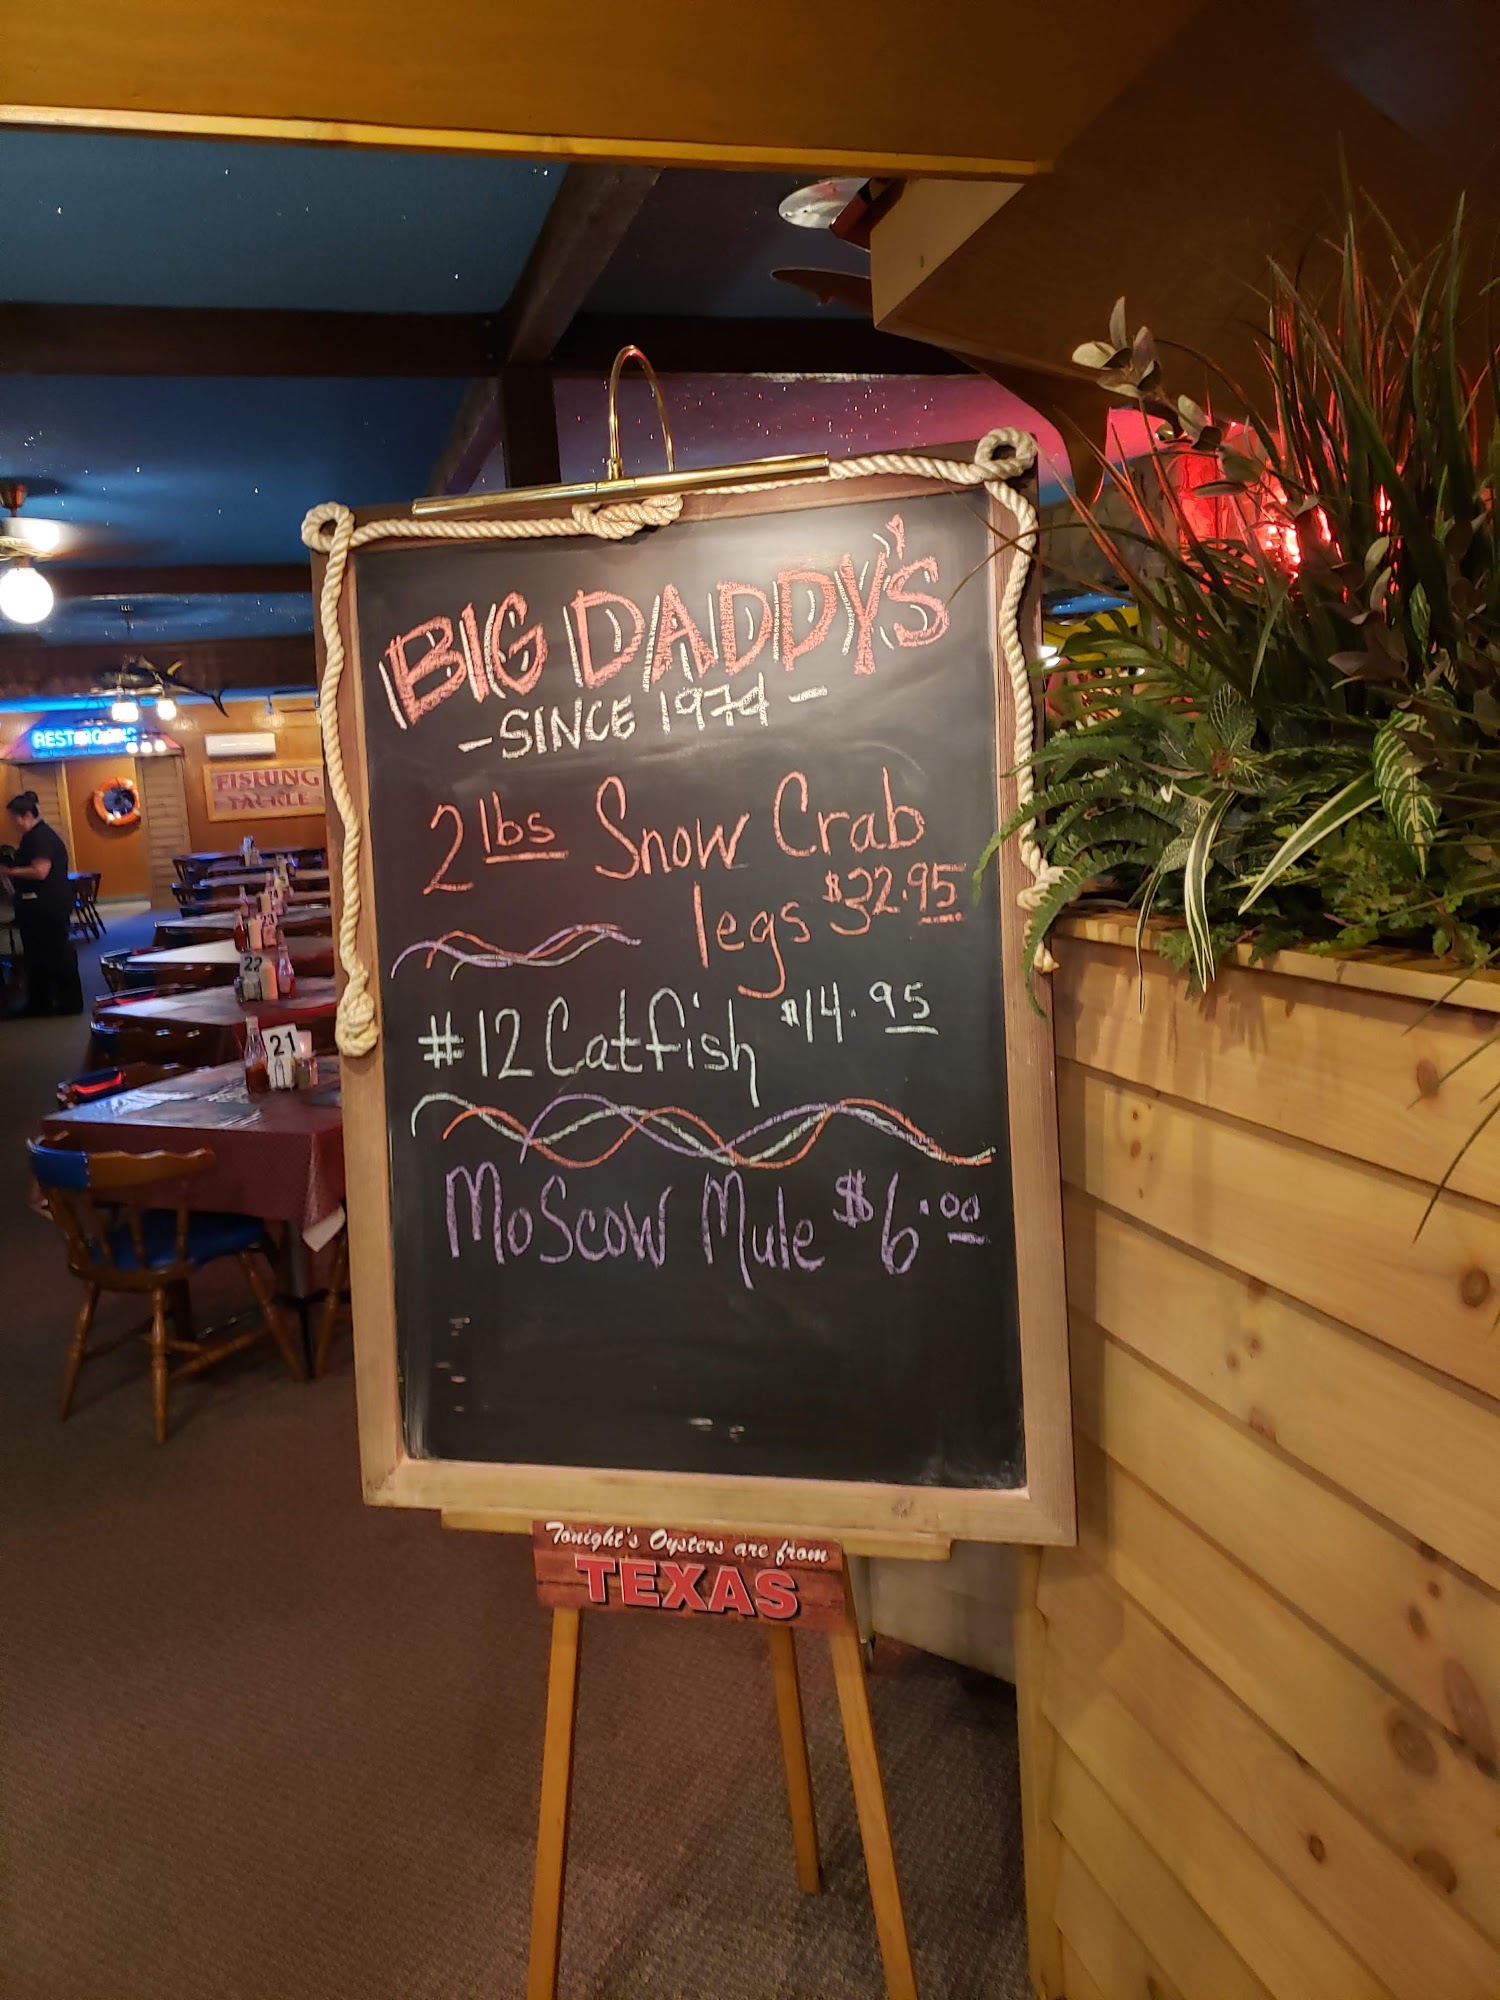 BIG DADDY'S
- SINCE 1974 -
2 lbs Snow Crab
legs $32.95
#12 Catfish $14.95
Moscow Mule $6.00
Tonight's Oysters are from
TEXAS
RESTROOMS
FISHING
TACKLE
23
22
21